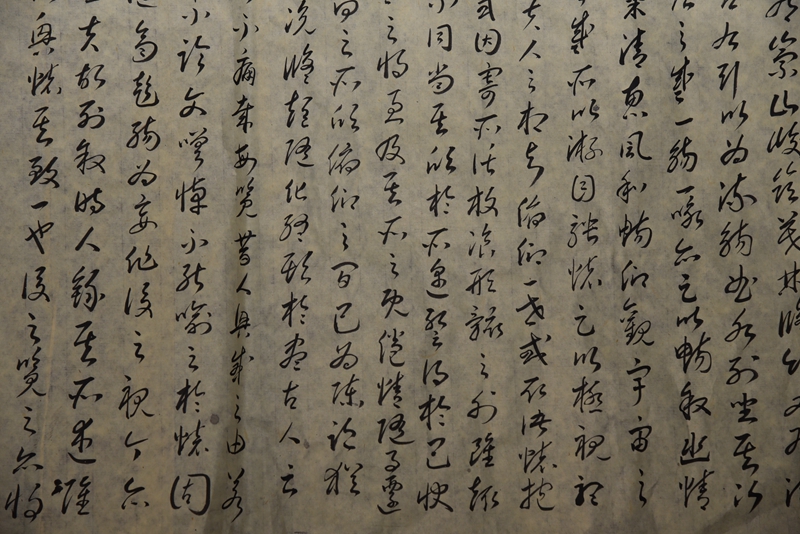 有崇山峻嶺茂林脩竹又有清
左右引以為流觴曲水列坐其次
之盛一觴一詠亦足以暢敘幽情
氣清惠風和暢仰觀宇宙之
盛所以游目騁懷足以極視聽
夫人之相與俯仰一世或取諸懷抱
或因寄所託放浪形骸之外雖趣
不同當其欣於所遇暫得於己快
之將至及其所之既倦情隨事遷
向之所欣俯仰之間已為陳迹猶
況脩短隨化終期於盡古人云
不痛哉每覽昔人興感之由若
不臨文嗟悼不能喻之於懷固
齊彭殤為妄作後之視今亦
夫故列敘時人錄其所述雖
興懷其致一也後之覽之亦將